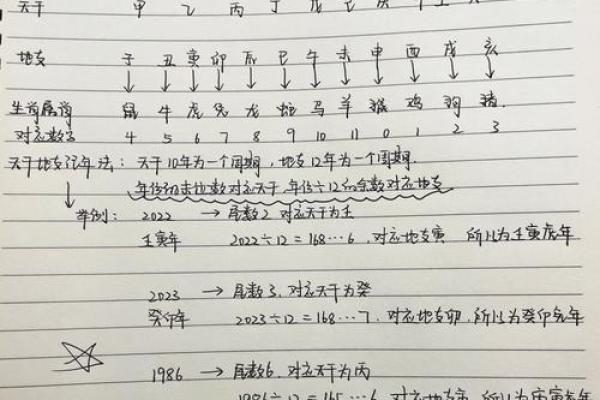 天干 甲 乙 丙 丁 戊 己 庚 辛 壬
地支 子 丑 寅 卯 辰 巳 午 未 申 酉 戌 亥
生肖属肖 鼠 牛 虎 兔 龙 蛇 马 羊 猴 鸡 狗 猪
对应数字 4 5 6 7 8 9 10 11 0 1 2 3
天干地支纪年法: 天干10年为一个周期, 地支12年为一个周期.
年份的末位数对应天干, 年份÷12的余数对应地支
举例: 2022 → 尾数2, 对应天干为壬
壬寅年 2022÷12=168…6, 对应地支寅 所以为壬寅虎年
2023 → 尾数3, 对应天干为癸
癸卯年 2023÷12=168…7, 对应地支卯, 所以为癸卯兔年
1986 → 尾数6, 对应天干为丙
1986÷12=165…6, 对应地支寅, 所以为丙寅虎年